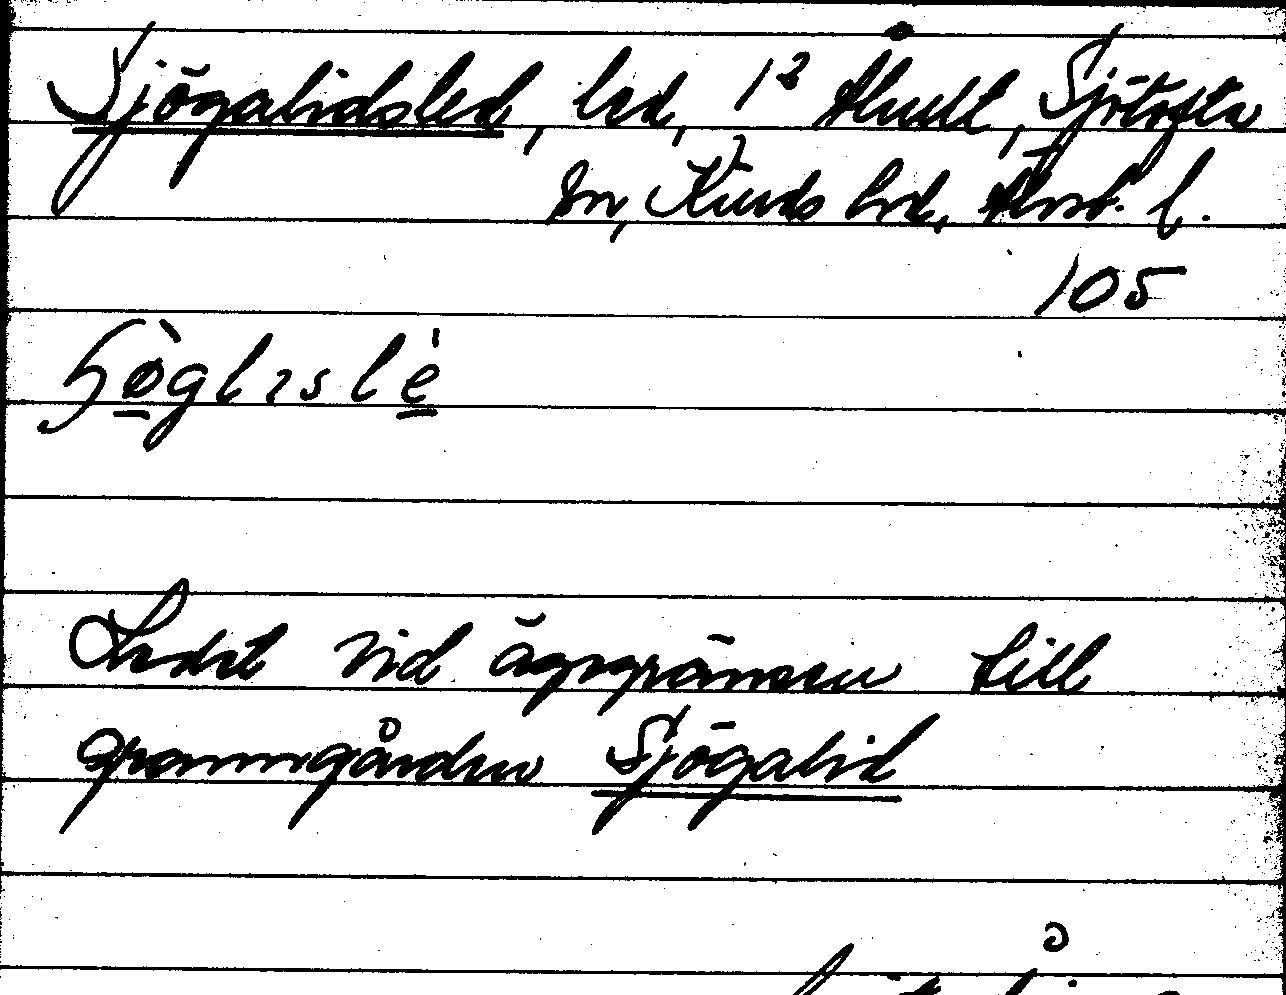 Sjögalidsled, led, 1² Ahult, Sjötofta
sn, Kinds hd, Älvsb. l.
105
Ledet vid ägogränsen till
granngården Sjögalid